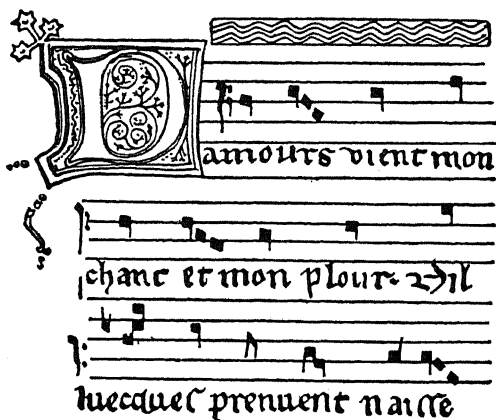 Damours vient mon
chant et mon plour. ⁊ il
luecques prennent naisse